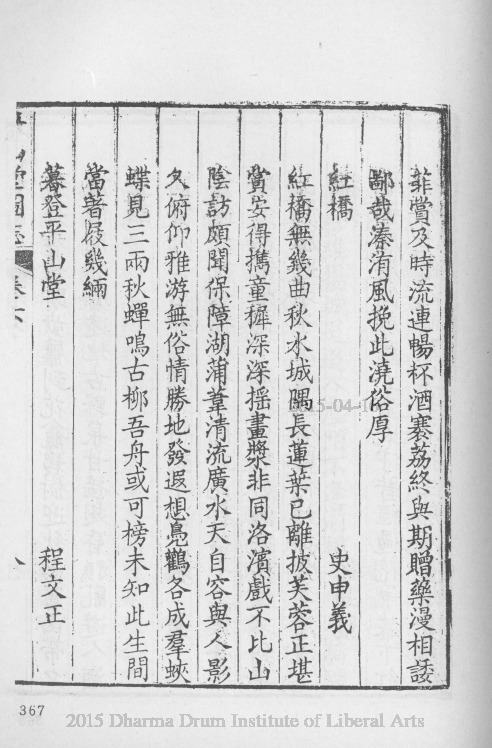 菲賞及時流連暢杯酒搴荔終與期贈藥漫相諉
鄙哉溱洧風挽此澆俗厚
紅橋 史申義
紅橋無幾曲秋水城隅長蓮葉已離披芙蓉正堪
賞安得擕童穉深深搖畫槳非同洛濱戲不比山
陰訪頗聞保障湖蒲葦清流廣水天自容與人影
久俯仰雅游無俗情勝地發遐想鳧鸛各成羣蛺
蝶見三兩秋蟬鳴古柳吾舟或可榜未知此生間
當著屐幾緉
暮登平山堂 程文正
堂圖志 卷六 八
367
2015 Dharma Drum Institute of Liberal Arts